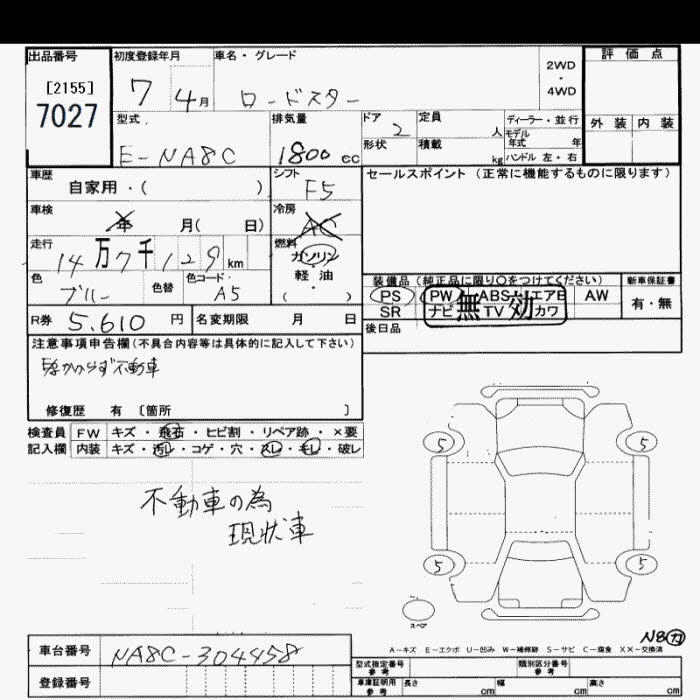 出品番号
[2155]
7027
初度登録年月
7 4月
車名・グレード
ロードスター
2WD
・
4WD
評価点
外装 内装
型式
E-NA8C
排気量
1800 cc
ドア
2
形状
定員
人
積載
kg
ディーラー・並行
モデル年式 年
ハンドル 左・右
車歴
自家用・( )
シフト
F5
セールスポイント(正常に機能するものに限ります)
車検
年 月( 日)
冷房
AC
走行
14万7千129km
燃料
ガソリン
軽油
・
( )
色
ブルー
色替
色コード
A5
装備品(純正品に限り○をつけてください)
PS PW ABS エアB AW
SR ナビ TV カワ
無効
新車保証書
有・無
R券 5.610 円
名変期限 月 日
後日品
注意事項申告欄(不具合内容等は具体的に記入して下さい)
かからず不動車
修復歴 有 〔箇所 〕
検査員 FW キズ・飛石・ヒビ割・リペア跡・×要
記入欄 内装 キズ・汚レ・コゲ・穴・スレ・モレ・破レ
不動車の為
現状車
5 5
5 5
スペア
N8カ
A-キズ E-エクボ U-凹み W-補修跡 S-サビ C-腐食 XX-交換済
車台番号 NA8C-304458
登録番号
型式指定番号 参考
類別区分番号 参考
車庫証明用 参考
長さ cm 幅 cm 高さ cm